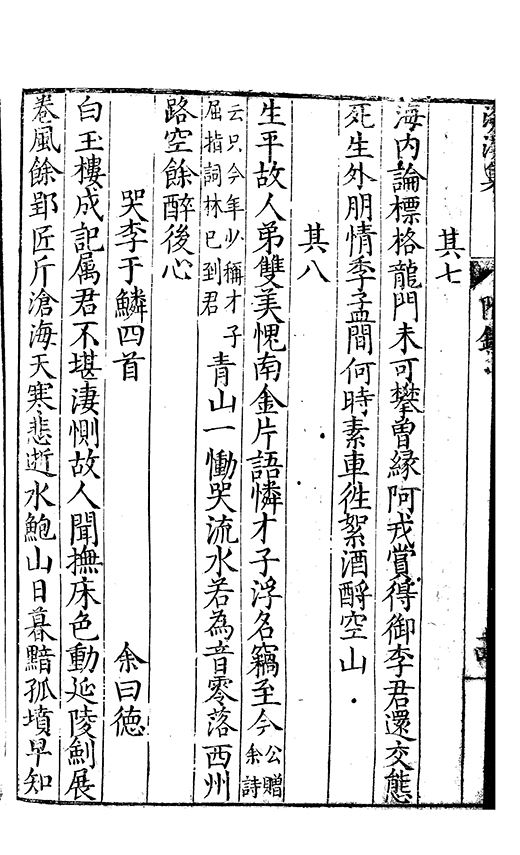 滄溟集 附錄
其七
海內論標格龍門未可攀曾緣阿戎賞得御李君還交態
死生外朋情季孟間何時素車徃絮酒酹空山
其八
生平故人弟雙美愧南金片語憐才子浮名竊至今公贈余詩
云只今年少稱才子屈指詞林已到君青山一慟哭流水若為音零落西州
路空餘醉後心
哭李于鱗四首 余曰德
白玉樓成記属君不堪淒惻故人聞撫床色動延陵劎展
卷風餘郢匠斤滄海天寒悲逝水鮑山日暮黯孤墳早知